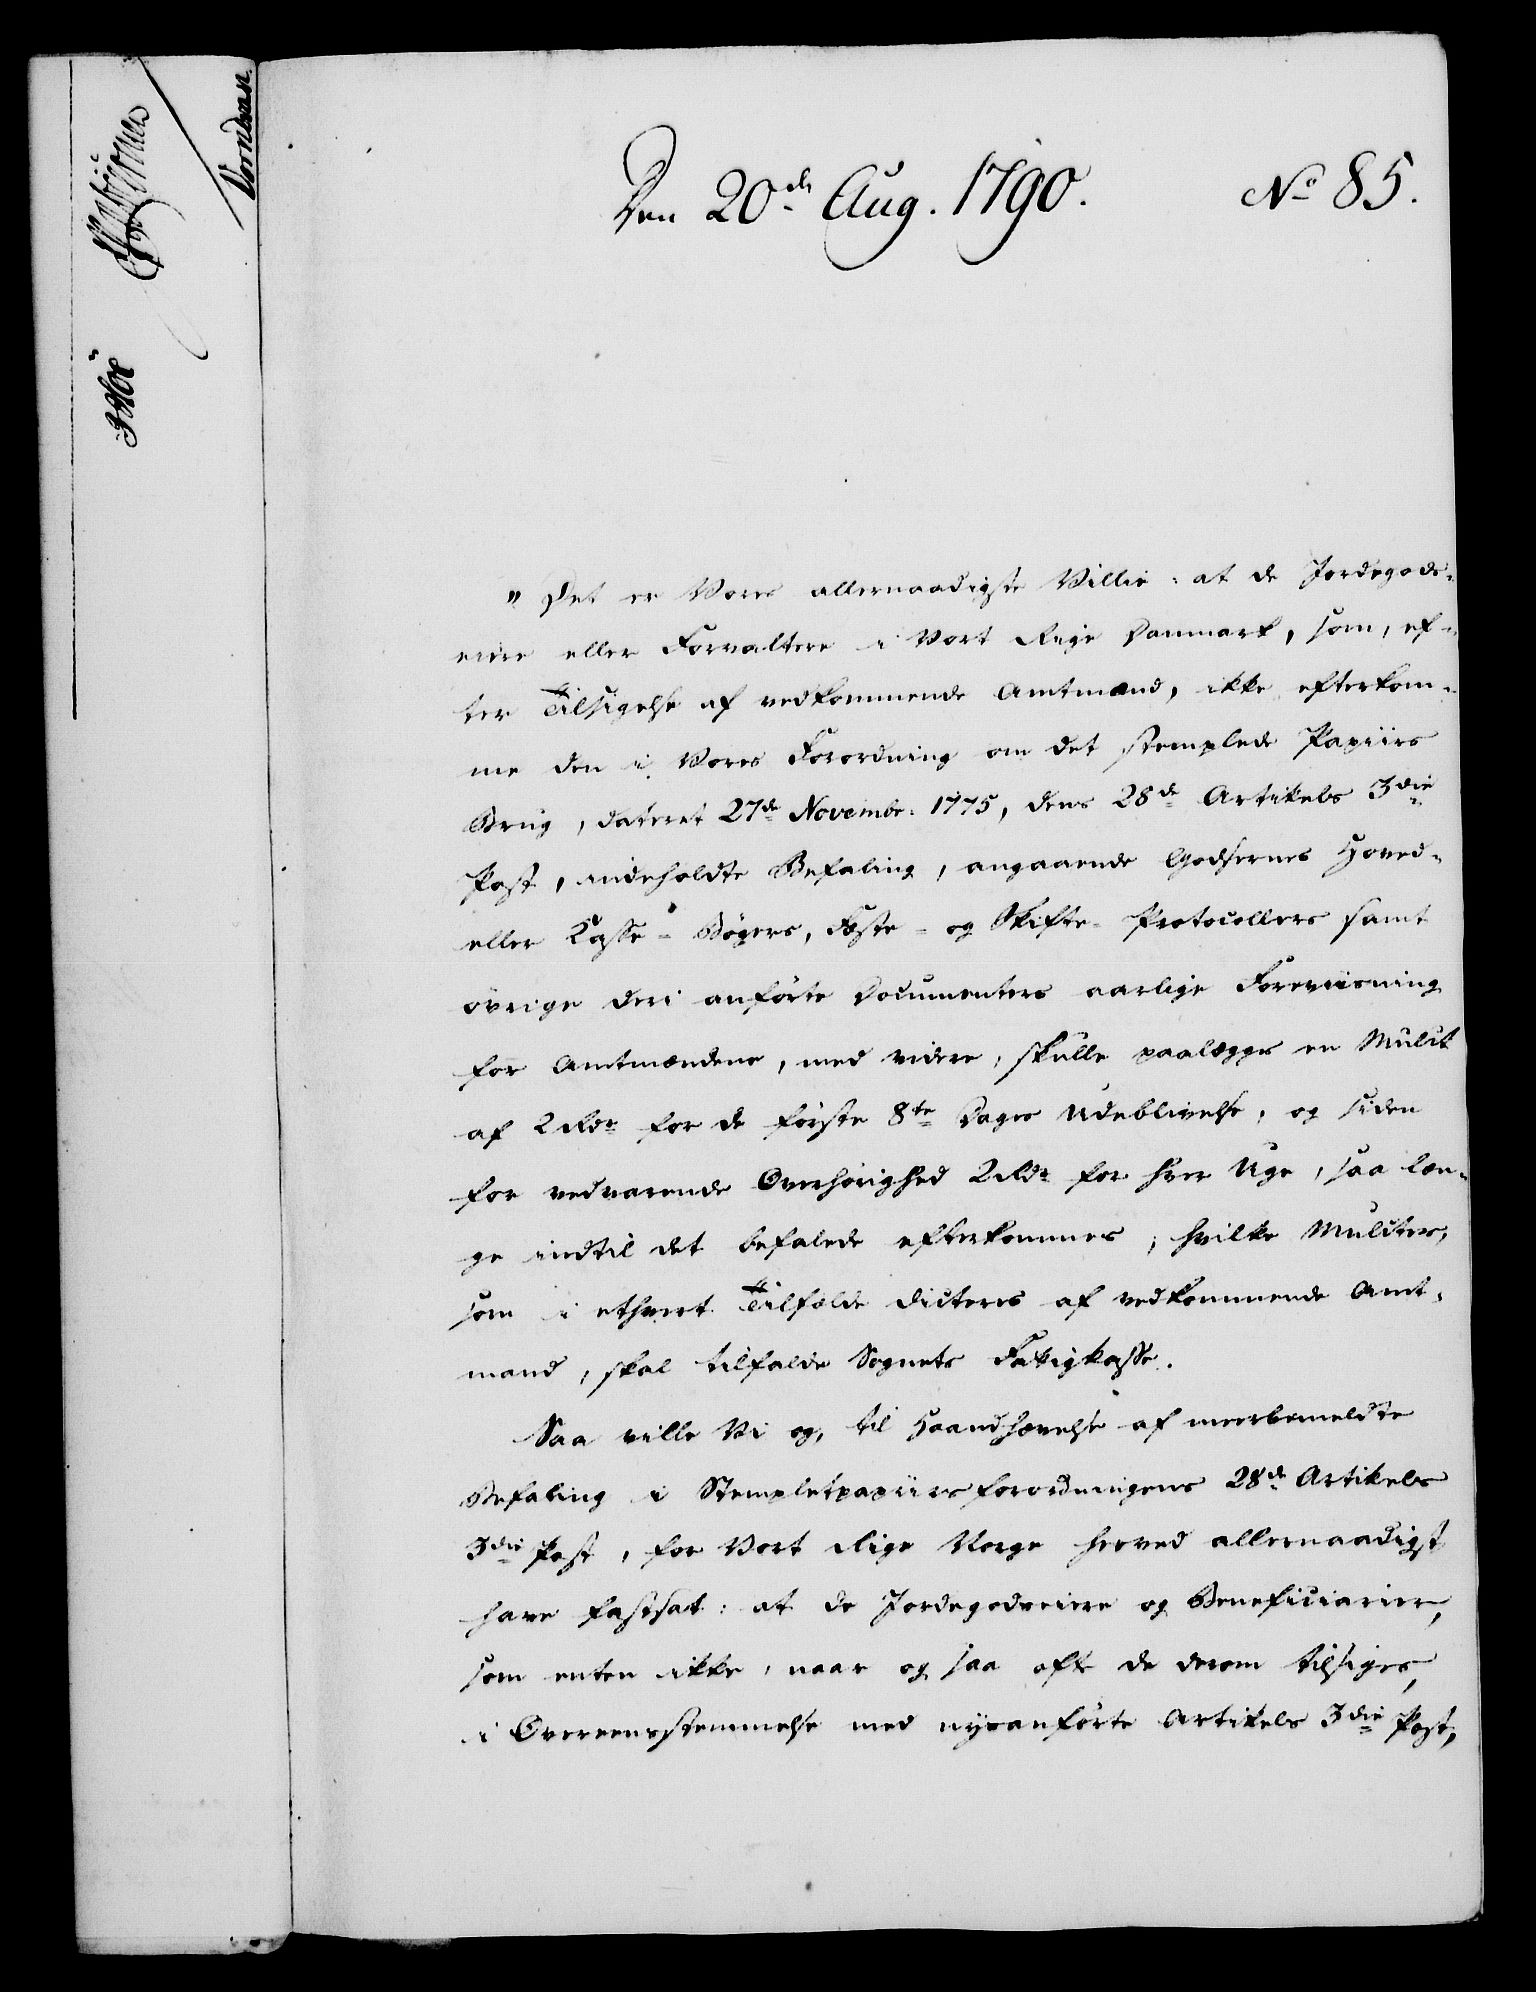 Den 20de Aug. 1790. No 85.
" Det er Vores allernaadigste Villie: at de Jordegods-
eiere eller Forvaltere i Vort Rige Danmark, som, ef-
ter Tilsigelse af vedkommende Amtmænd, ikke efterkom-
me den i Vores Forordning om det stemplede Papiirs
Brug, dateret 27de Novembr: 1775, dens 28de Artikels 3die
Post, indeholdte Befaling, angaaende Godsernes Hoved-
eller Casse-Bøgers, Fæste- og Skifte-Protocollers samt
øvrige deri anførte Documenters aarlige Foreviisning
for Amtmændene, med videre, skulle paalægges en Mulct
af 2 Rdr for de første 8te Dages Udeblivelse, og siden
for vedvarende Overhørighed 2 Rdr for hver Uge, saa læn-
ge indtil det befalede efterkommes; hvilke Mulcter,
som i ethvert Tilfælde dicteres af vedkommende Amt-
mand, skal tilfalde Sognets Fattigkasse.
Saa ville Vi og, til Haandhævelse af meerbemeldte
Befaling i Stempletpapiirsforordningens 28de Artikels
3die Post, for Vort Rige Norge herved allernaadigst
have fastsat: at de Jordegodseiere og Beneficiarier,
som enten ikke, naar og saa ofte de derom tilsiges,
i Overeensstemmelse med nysanførte Artikels 3die Post,